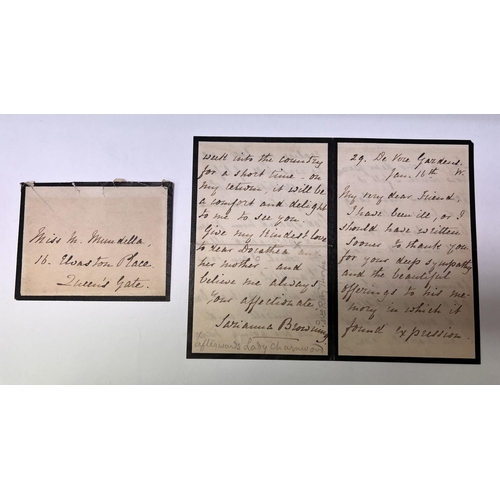 Miss M. Mundella,
16. Elvaston Place
Queen's Gate.
29. De Vere Gardens.
Jan. 16th W.
My very dear Friend,
I have been ill, or I
should have written
sooner to thank you
for your deep sympathy
and the beautiful
offerings to his me-
mory in which it
found expression.
week into the country
for a short time - on
my return, it will be
a comfort and delight
to me to see you.
Give my Kindest love
to dear Dorothea and
her mother and
believe me always
Your affectionate
Sarianna Browning
afterwards Lady Charnwood